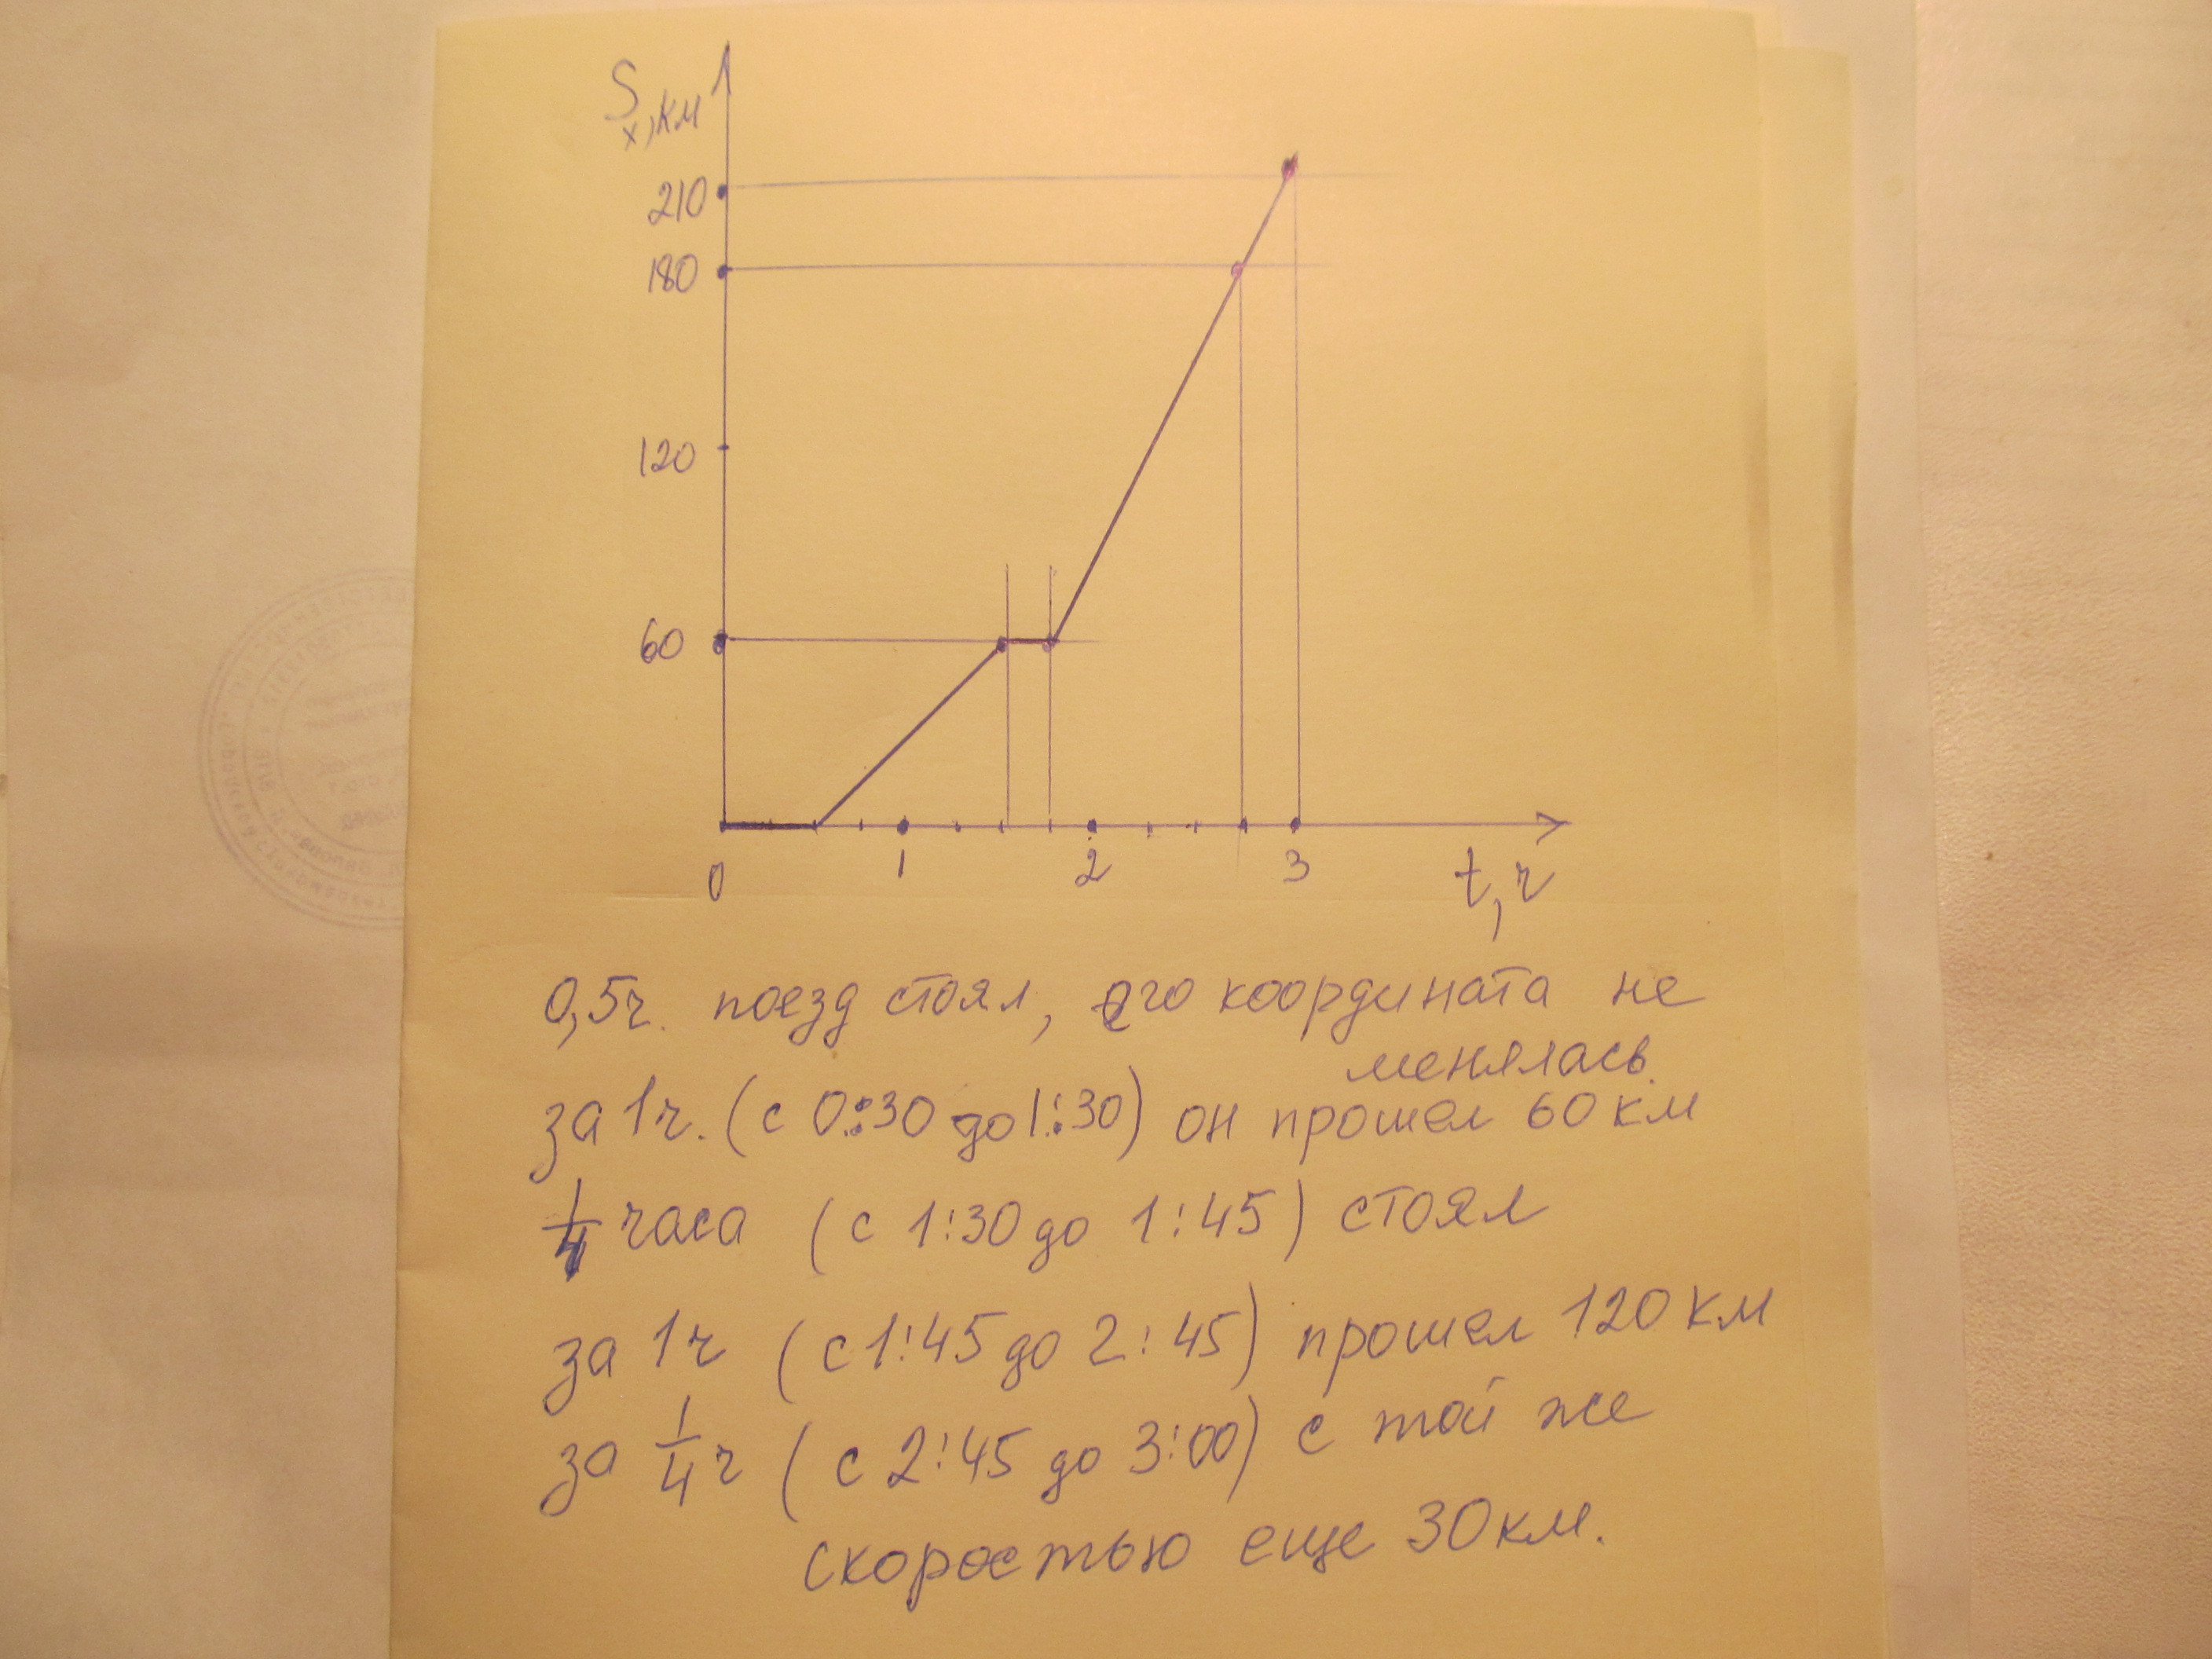 S
x, км
210
180
120
60
0 1 2 3 t, ч
0,5ч. поезд стоял, его координата не
менялась.
за 1ч. (с 0:30 до 1:30) он прошел 60 км
1/4 часа (с 1:30 до 1:45) стоял
за 1ч (с 1:45 до 2:45) прошел 120 км
за 1/4 ч (с 2:45 до 3:00) с той же
скоростью еще 30 км.